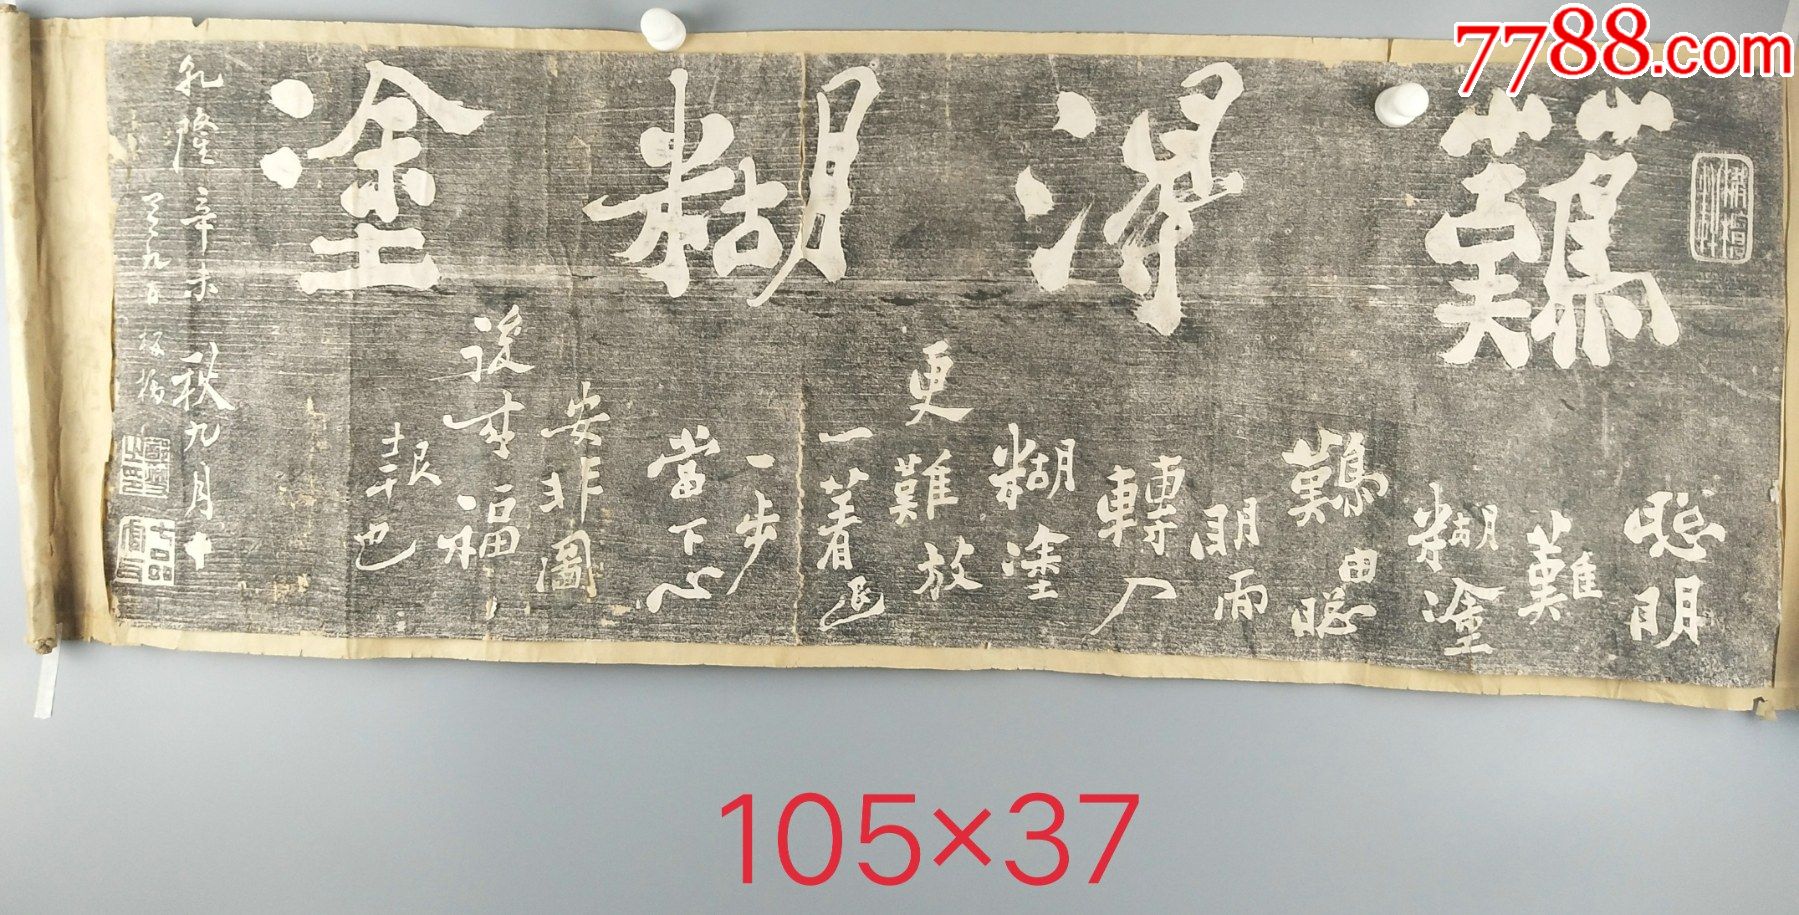 7788.com
難得糊塗
聰明
難
糊塗
難由聰
明而
轉入
糊塗
更難放
一著退
一步
當下心
安非圖
後來福
報也
乾隆辛未秋九月十
有九日板橋
鄭燮之印
七品官耳
105×37